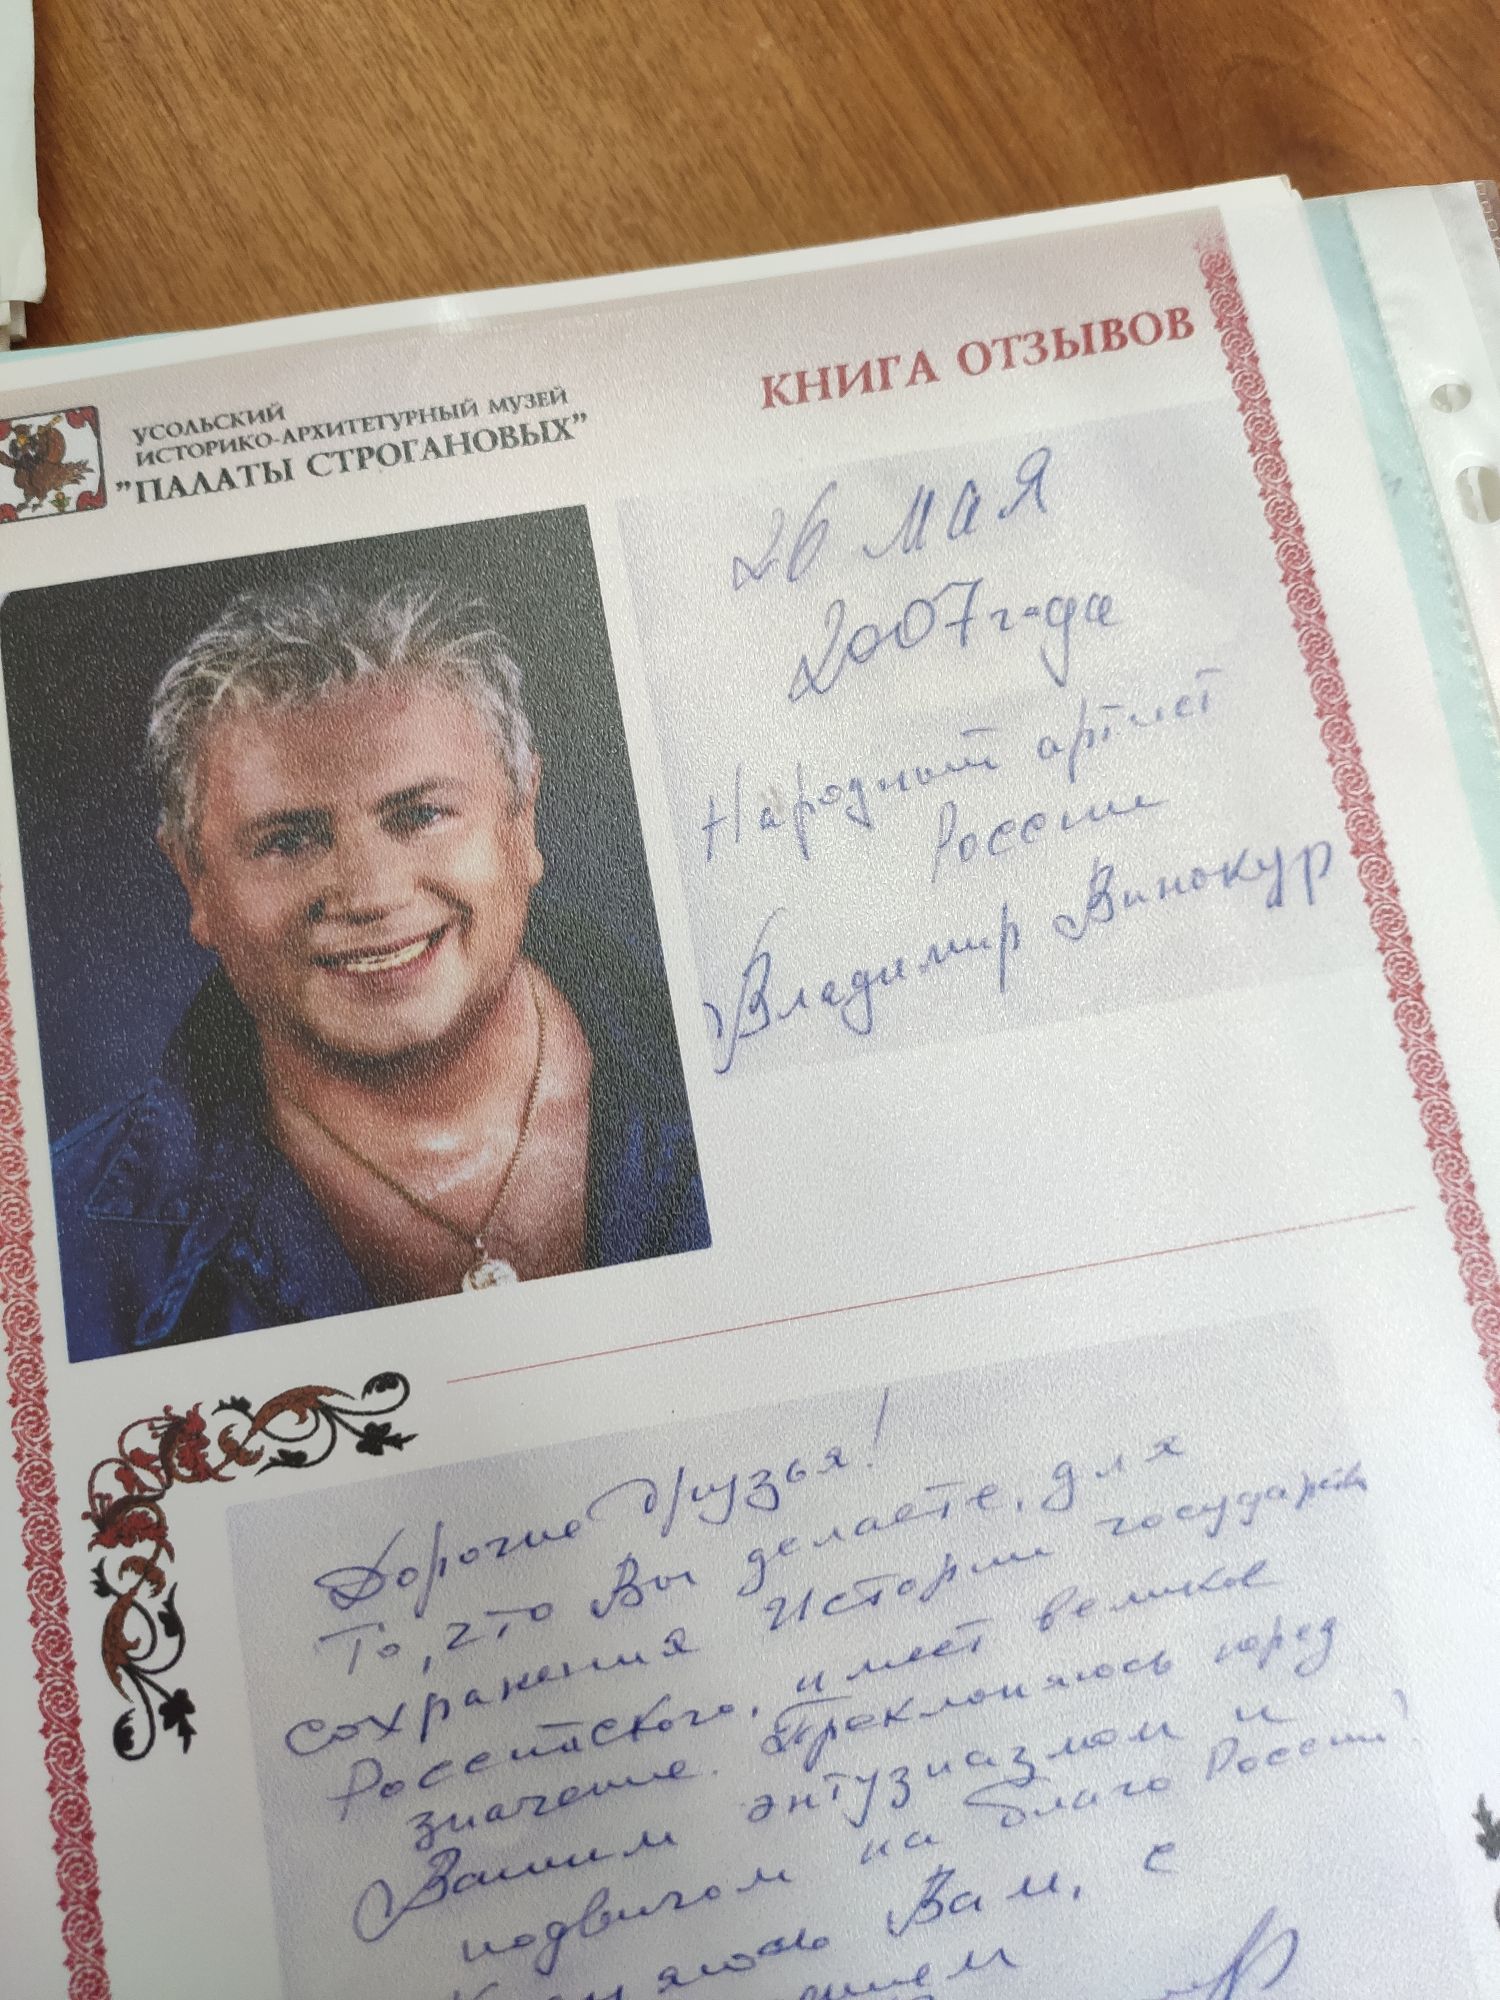 УСОЛЬСКИЙ
ИСТОРИКО-АРХИТЕТУРНЫЙ МУЗЕЙ
"ПАЛАТЫ СТРОГАНОВЫХ"
КНИГА ОТЗЫВОВ
26 мая
2007 г-да
Народный артист
России
Владимир Винокур
Дорогие друзья!
То, что Вы делаете, для
сохранения Истории государств
Российского, имеет великое
значение. Преклоняюсь перед
Вашим энтузиазмом и
подвигом на благо России!
Вам, с